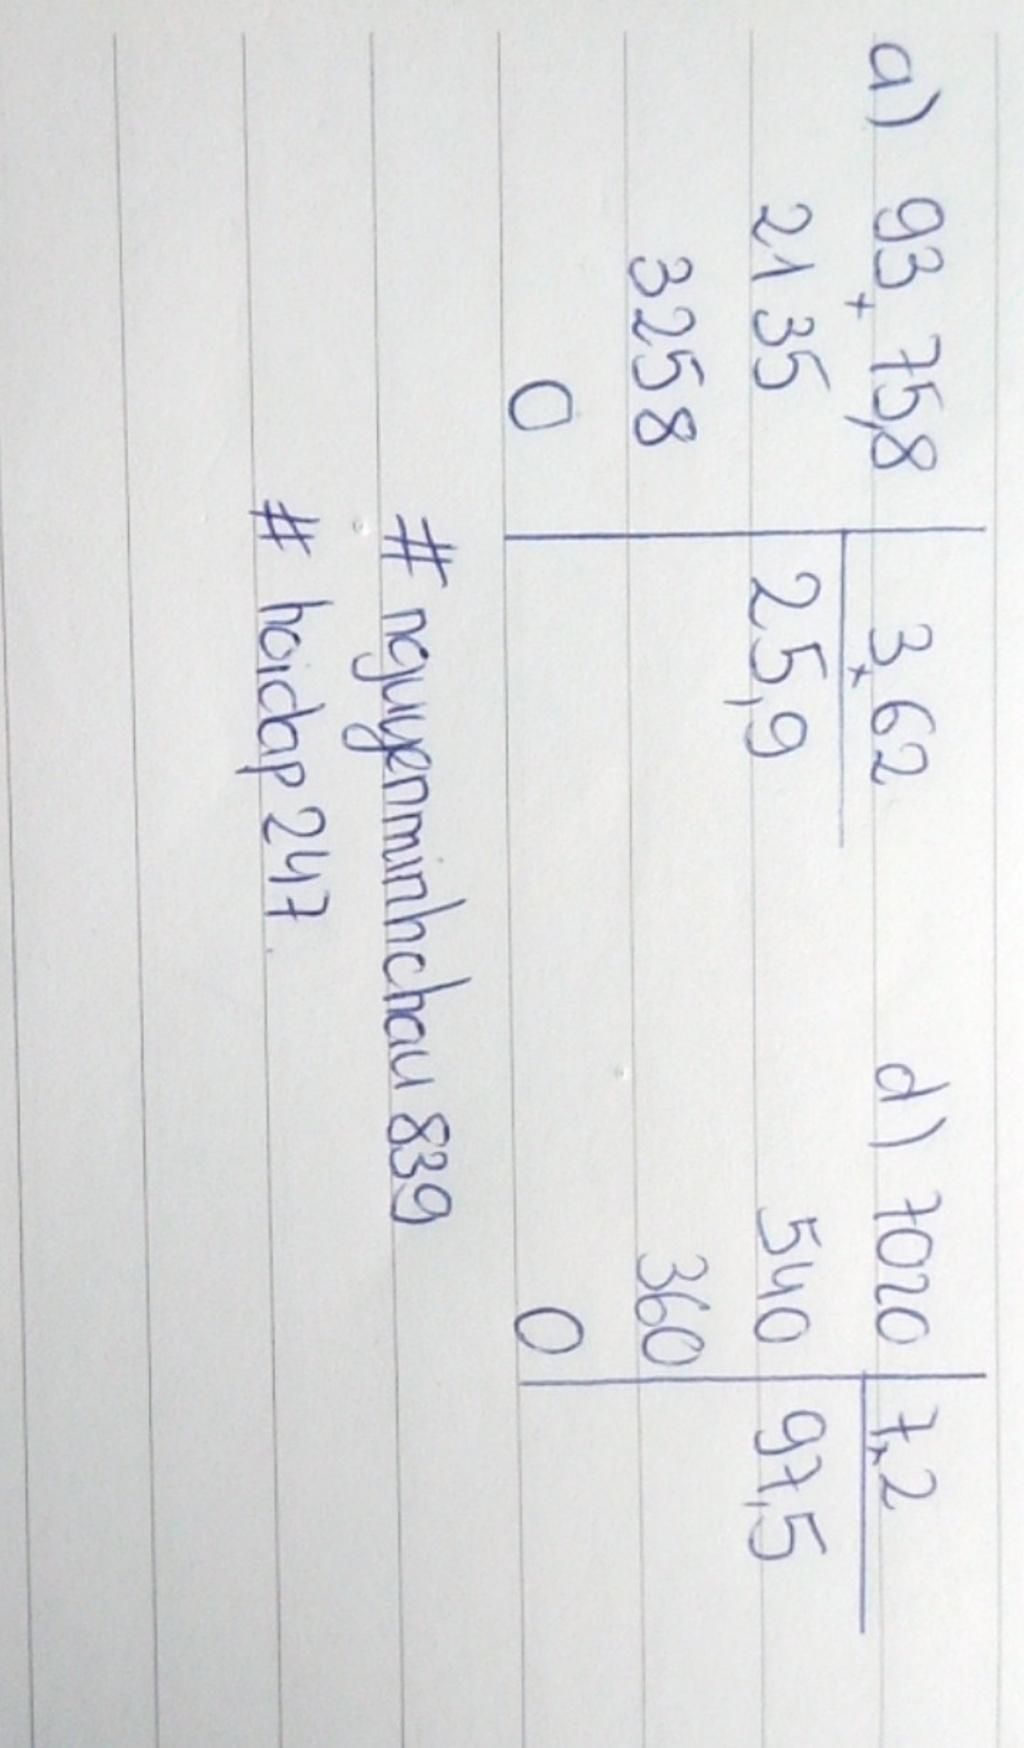 a) 93,75,8 3,62 d) 7020 7,2
2135 25,9 540 97,5
3258 360
0 0
# nguyenminhchau839
# hoidap247